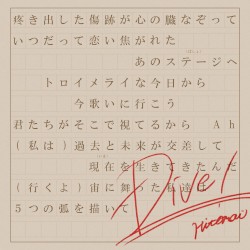 疼き出した傷跡が心の臓なぞって
いつだって恋い焦がれた
あのステージへ
トロイメライな今日から
今歌いに行こう
君たちがそこで視てるから Ah
(私は)過去と未来が交差して
現在を生きてきたんだ
(行くよ)宙に舞った私達は
5つの弧を描いて
Dive!